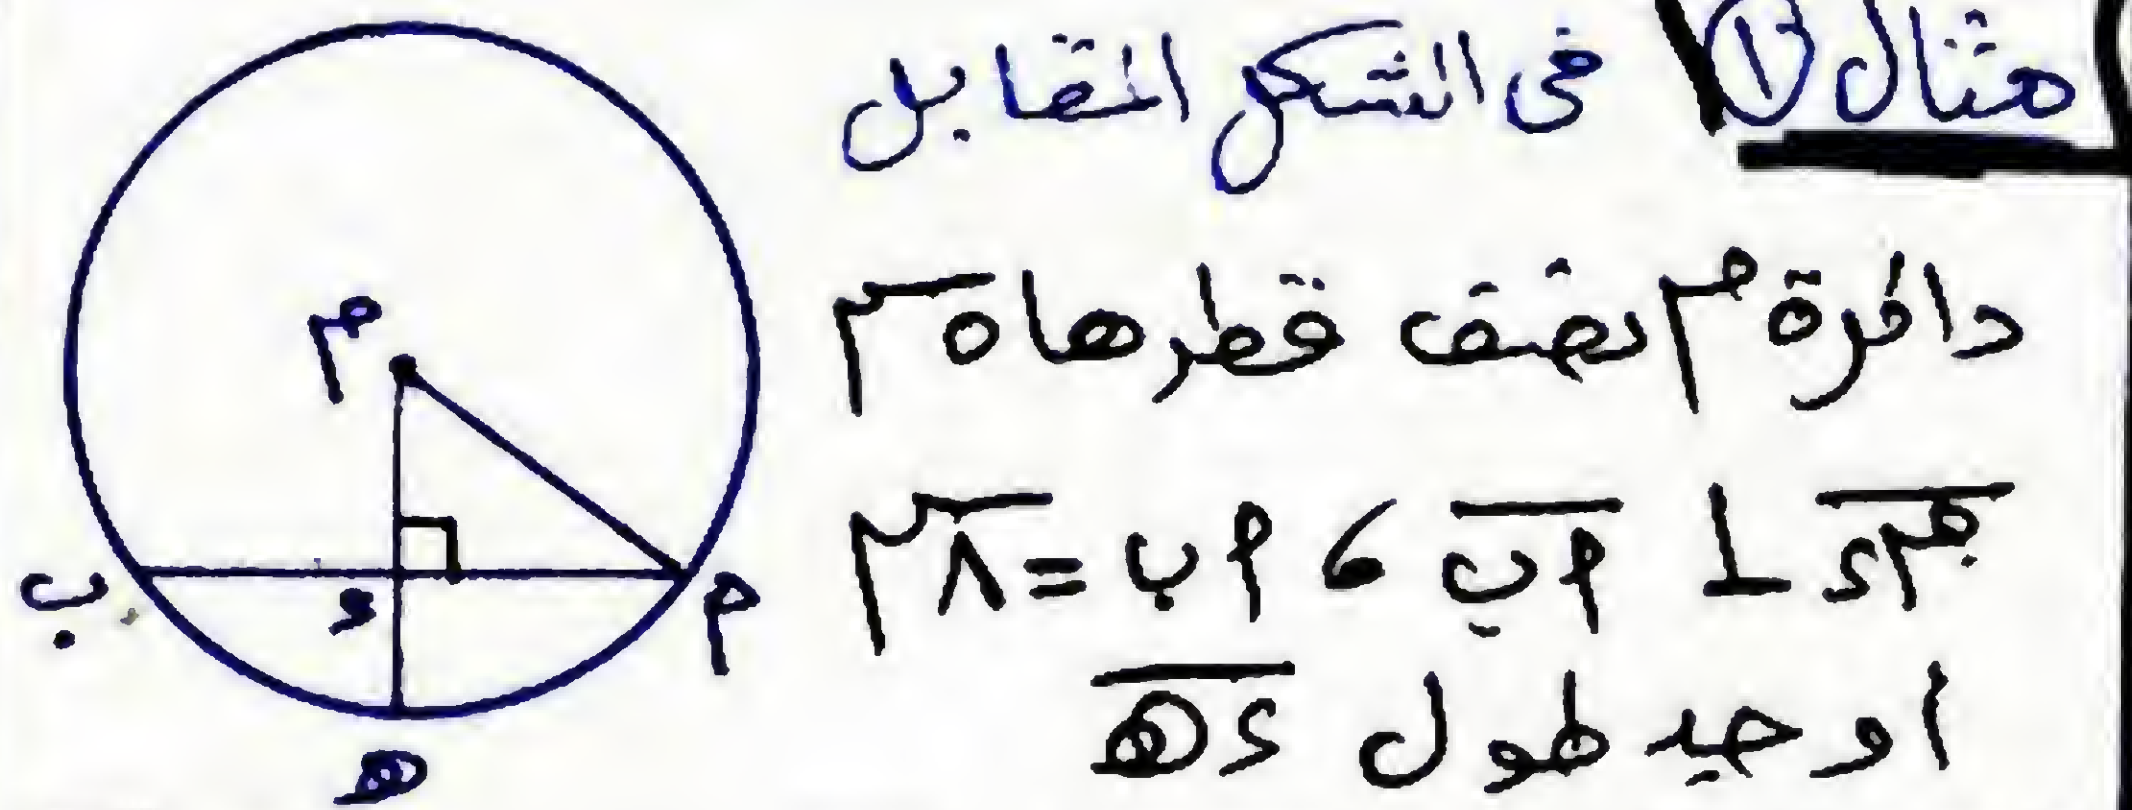 مثال ① فى الشكل المقابل
دائرة م نصف قطرها ٥ سم
م د ⊥ أ ب ، أ ب = ٨ سم
اوجد طول د هـ
م
أ
ب
د
هـ